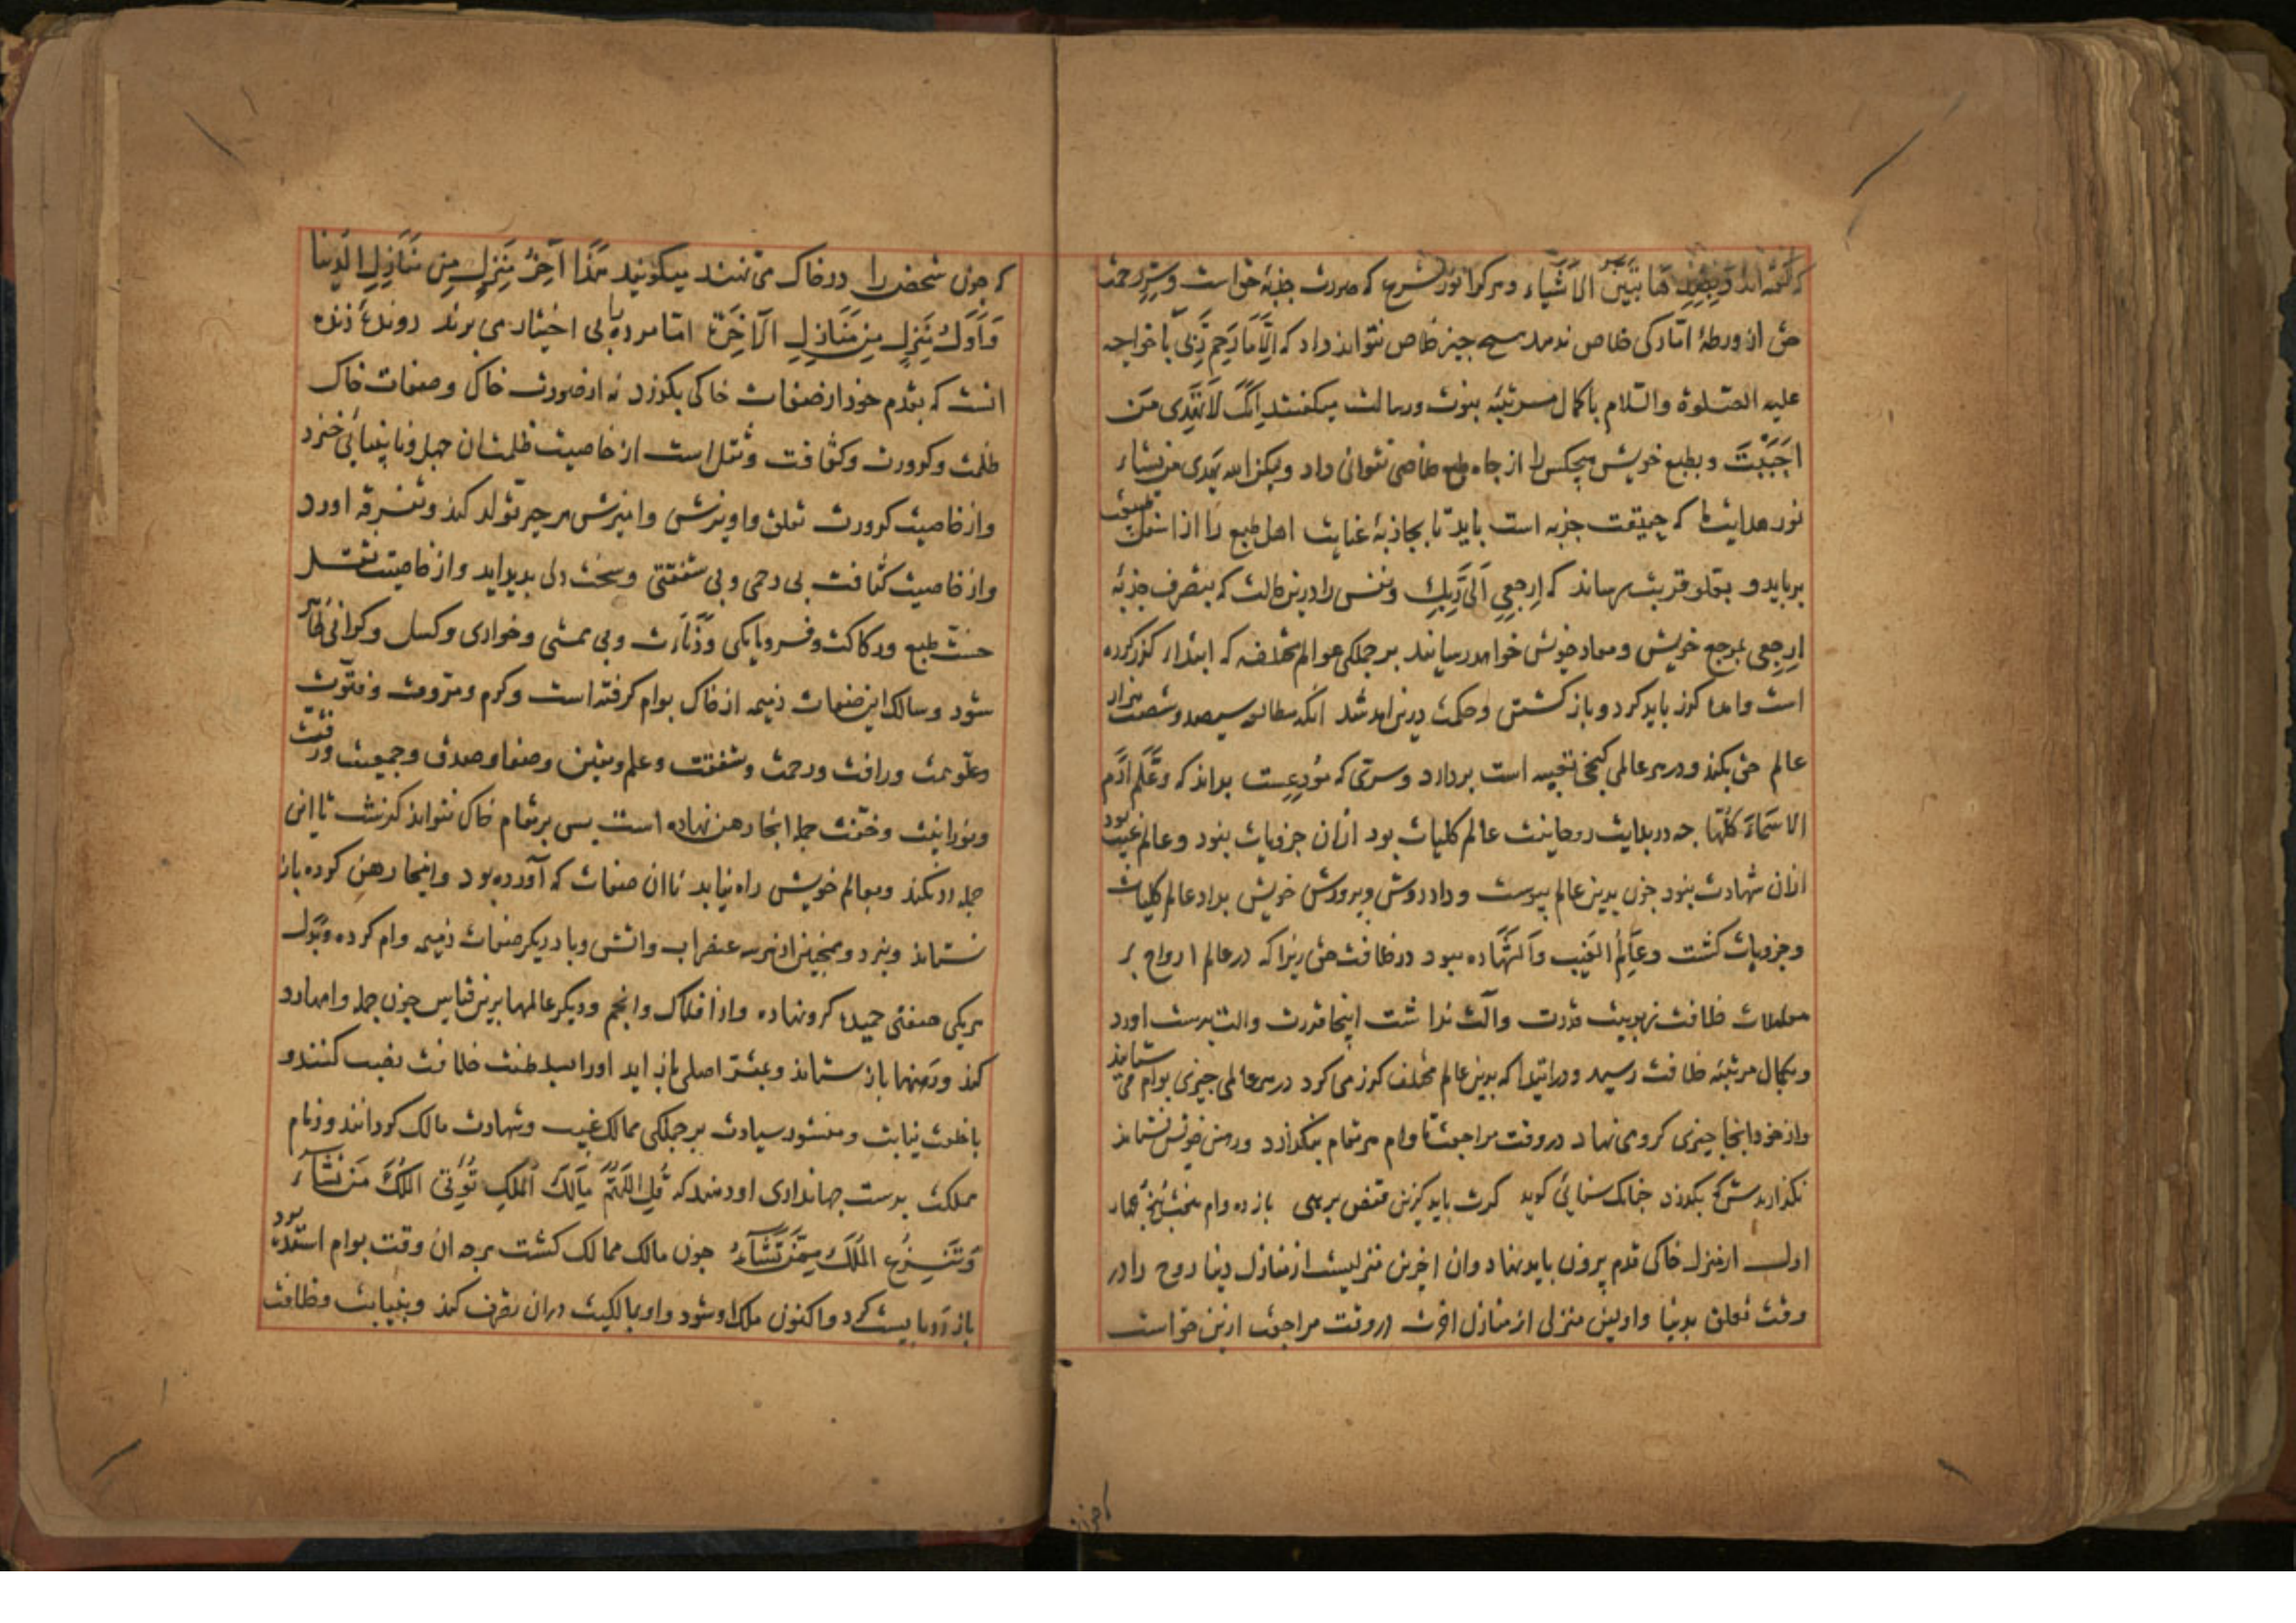 که گفته اند وبضدها تتبین الاشیاء وهر کرا نور شرع که صورت جذبهٔ حق است وسر رحمت
حق از ورطهٔ امارکی خلاص ندهد هیچ چیز خلاص نتواند داد که الا ما رحم ربی با خواجه
علیه الصلوة والسلام باکمال مرتبهٔ نبوت ورسالت میکفتند انک لا تهدی من
احببت وبطبع خویش هیچکس را از چاه طبع خلاصی نتوانی داد ولیکن الله یهدی من یشاء
نور هدایت ما که حقیقت جذبه است باید تا بجاذبهٔ عنایت اهل طبع را از اسفل طبیعت
برباید و بعلو قربت رساند که ارجعی الی ربک ونفس را درین حالت که بتصرف جذبهٔ
ارجعی بمرجع خویش ومعاد خویش خواهد رسانید بر جملکی عوالم مختلفه که ابتداء کذر کرده
است واما کذر باید کرد و باز کشتن وحکمت درین امد شد انکه مطالعه سیصد وشصت هزار
عالم حق بکند ودر هر عالمی کنجی تعبیه است بردارد وسری که مودعست بداند که وعلم ادم
الاسماء کلها چه در بدایت روحانیت عالم کلیات بود ازان جزویات نبود وعالم غیب بود
ازان شهادت نبود چون بدین عالم پیوست وداد روش وپرورش خویش بداد عالم کلیات
وجزویات کشت وعالم الغیب والشهاده ببود در خلافت حق زیرا که در عالم ارواح بر
معاملات خلافت ربوبیت قدرت وآلت نداشت اینجا قدرت والت بدست اورد
وبکمال مرتبهٔ خلافت رسید ودر ابتدا که بدین عالم مختلف کذر می کرد در هر عالمی چیزی بوام می ستاند
واز خود انجا چیزی کرو می نهاد در وقت مراجعت تا وام هر مقام بنکذارد ورهن خویش نستاند
نکذارندش که بکذرد چنانک سنائی کوید کرت باید کزین قفص برهی باز ده وام هفت پنج چهار
اول از منزل خاکی قدم بیرون باید نهاد وان اخرین منزلیست از منازل دنیا روح را در
وقت تعلق بدنیا واولین منزلی از منازل اخرت در وقت مراجعت ازین خواست
که چون شخص را در خاک می نهند میکویند هذا آخر منزل من منازل الدنیا
واول منزل من منازل الآخرة اما مرده را بی اختیار می برند روندهٔ زنده
انست که بقدم خود از صفات خاکی بکذرد نه از صورت خاک وصفات خاک
ظلمت وکدورت وکثافت وثقل است از خاصیت ظلمت ان جهل ونابینائی خیزد
واز خاصیت کدورت تعلق واویزش وامیزش بهر چیز تولد کند وتفرقه اورد
واز خاصیت کثافت بی رحمی وبی شفقتی وسخت دلی پدید اید واز خاصیت ثقل
خست طبع ورکاکت وفرومایکی ودنارت وبی همتی وخواری وکسل وکرانی ظاهر
شود وسالک این صفات ذمیمه از خاک بوام کرفته است وکرم ومروت وفتوت
وعلو همت ورافت ورحمت وشفقت وعلم ویقین وصفا وصدق وجمعیت ورقت
ونورانیت وخفت جمله انجا رهن نهاده است پس بر مقام خاک نتواند کذشت تا این
جمله رد نکند وبعالم خویش راه نیابد تا ان صفات که آورده بود واینجا رهن کرده باز
نستاند ونبرد وهمچنین از هر سه عنصر اب واتش وباد دیکر صفات ذمیمه وام کرده وببدل
هر یکی صفتی حمیده کرو نهاده واز افلاک وانجم ودیکر عالمها برین قیاس چون جمله وامها رد
کند ورهنها باز ستاند وبمقر اصلی باز اید اورا بسلطنت خلافت نصب کنند و
با خلعت نیابت ومنشور سیادت بر جملکی ممالک غیب وشهادت مالک کردانند وزمام
مملکت بدست جهانداری او دهند که قل اللهم مالک الملک توتی الملک من تشاء
وتنزع الملک ممن تشاء چون مالک ممالک کشت هر چه ان وقت بوام استده بود
باز رد بایست کرد واکنون ملک او شود واو بمالکیت دران تصرف کند وبنیابت وخلافت